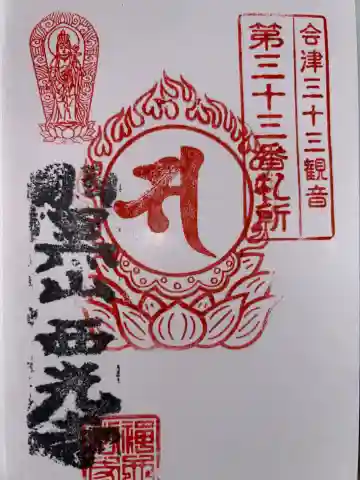 会津三十三観音
第三十三番札所
羽黒山西光寺